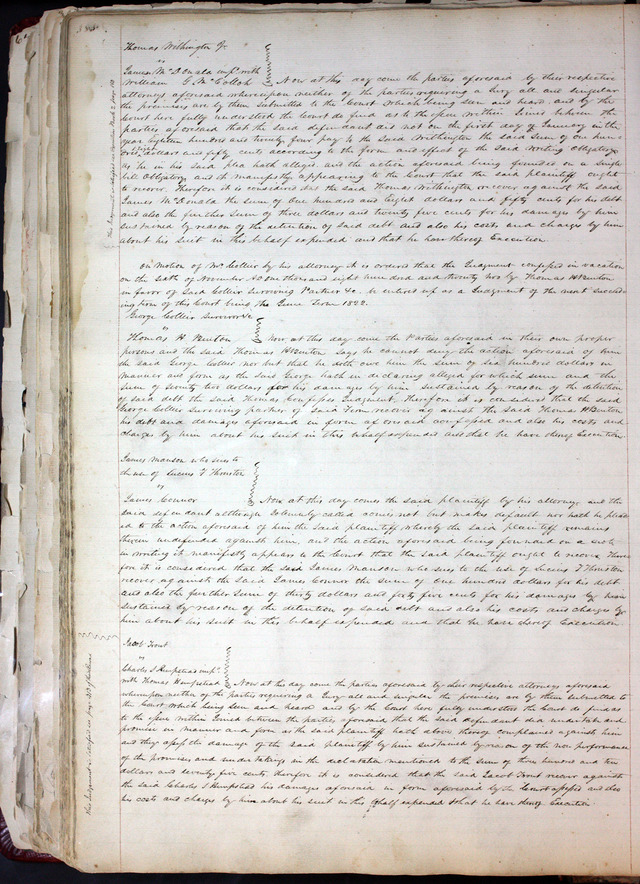 Thomas Withington Jr
vs
James McDonald impd with
William G. McColloh } Now at this day come the parties aforesaid by their respective
attorneys aforesaid whereupon neither of the parties requiring a Jury all and singular
the premises are by them submitted to the Court which being seen and heard and by the
Court here fully understood the Court do find as to the issue within lines between the
parties aforesaid that the said defendant did not on the first day of January in the
year eighteen hundred and twenty four pay to the said Withington the said sum of one hun
dred dollars and fifty cents according to the form and effect of the said writing obligatory
as he in his said plea hath alleged and the action aforesaid being founded on a single
bill obligatory and it manifestly appearing to the Court that the said plaintiff ought
to recover. Therefore it is considered that the said Thomas Withington recover against the said
James McDonald the sum of one hundred and eight dollars and fifty cents for his debt
and also the further sum of three dollars and twenty five cents for his damages by him
sustained by reason of the detention of said debt and also his costs and charges by him
about his suit in this behalf expended and that he have thereof Execution.
On motion of Mr Collier by his attorney it is ordered that the Judgment confessed in vacation
on the sixth of November AD one thousand eight hundred and twenty two by Thomas H Benton
in favor of said Collier surviving Partner &c. be entered up as a Judgment of the next succeed
ing term of this Court being the June Term 1822.
George Collier Survivor &c
vs
Thomas H Benton } Now at this day come the Parties aforesaid in their own proper
persons and the said Thomas H Benton says he cannot deny the action aforesaid of him
the said George Collier nor but that he doth owe him the sum of six hundred dollars in
manner and form as the said George hath in declaring alleged for which sum and the
sum of seventy two dollars for his damages by him sustained by reason of the detention
of said debt the said Thomas Confesses Judgment. Therefore it is considered that the said
George Collier surviving partner of said Firm recover against the said Thomas H Benton
his debt and damages aforesaid in form aforesaid confessed and also his costs and
charges by him about his suit in this behalf expended and that he have thereof Execution
James Manson who sues to
the use of Lucius T Thruston
vs
James Connor } Now at this day comes the said plaintiff by his attorney and the
said defendant although solemnly called comes not but makes default nor hath he plead
ed to the action aforesaid of him the said plaintiff whereby the said plaintiff remains
therein undefended against him, and the action aforesaid being founded on a note
in writing it manifestly appears to the Court that the said plaintiff ought to recover There
fore it is considered that the said James Manson who sues to the use of Lucius T Thruston
recover against the said James Connor the sum of one hundred dollars for his debt
and also the further sum of thirty dollars and forty five cents for his damages by him
sustained by reason of the detention of said debt and also his costs and charges by
him about his suit in this behalf expended and that he have thereof Execution
Jacob Trout
vs
Charles S Hempstead impd
with Thomas Hempstead } Now at this day come the parties aforesaid by their respective attorneys aforesaid
whereupon neither of the parties requiring a Jury all and singular the premises are by them submitted to
the Court which being seen and heard and by the Court here fully understood the Court do find as
to the issue within Joined between the parties aforesaid that the said defendant did undertake and
promise in manner and form as the said plaintiff hath above thereof complained against him
and they assess the damage of the said plaintiff by him sustained by reason of the non performance
of the promises and undertakings in the declaration mentioned to the sum of three hundred and ten
dollars and seventy five cents therefore it is considered that the said Jacob Trout recover against
the said Charles S Hempstead his damages aforesaid in form aforesaid by the Court assessed and also
his costs and charges by him about his suit in this behalf expended & that he have thereof Execution